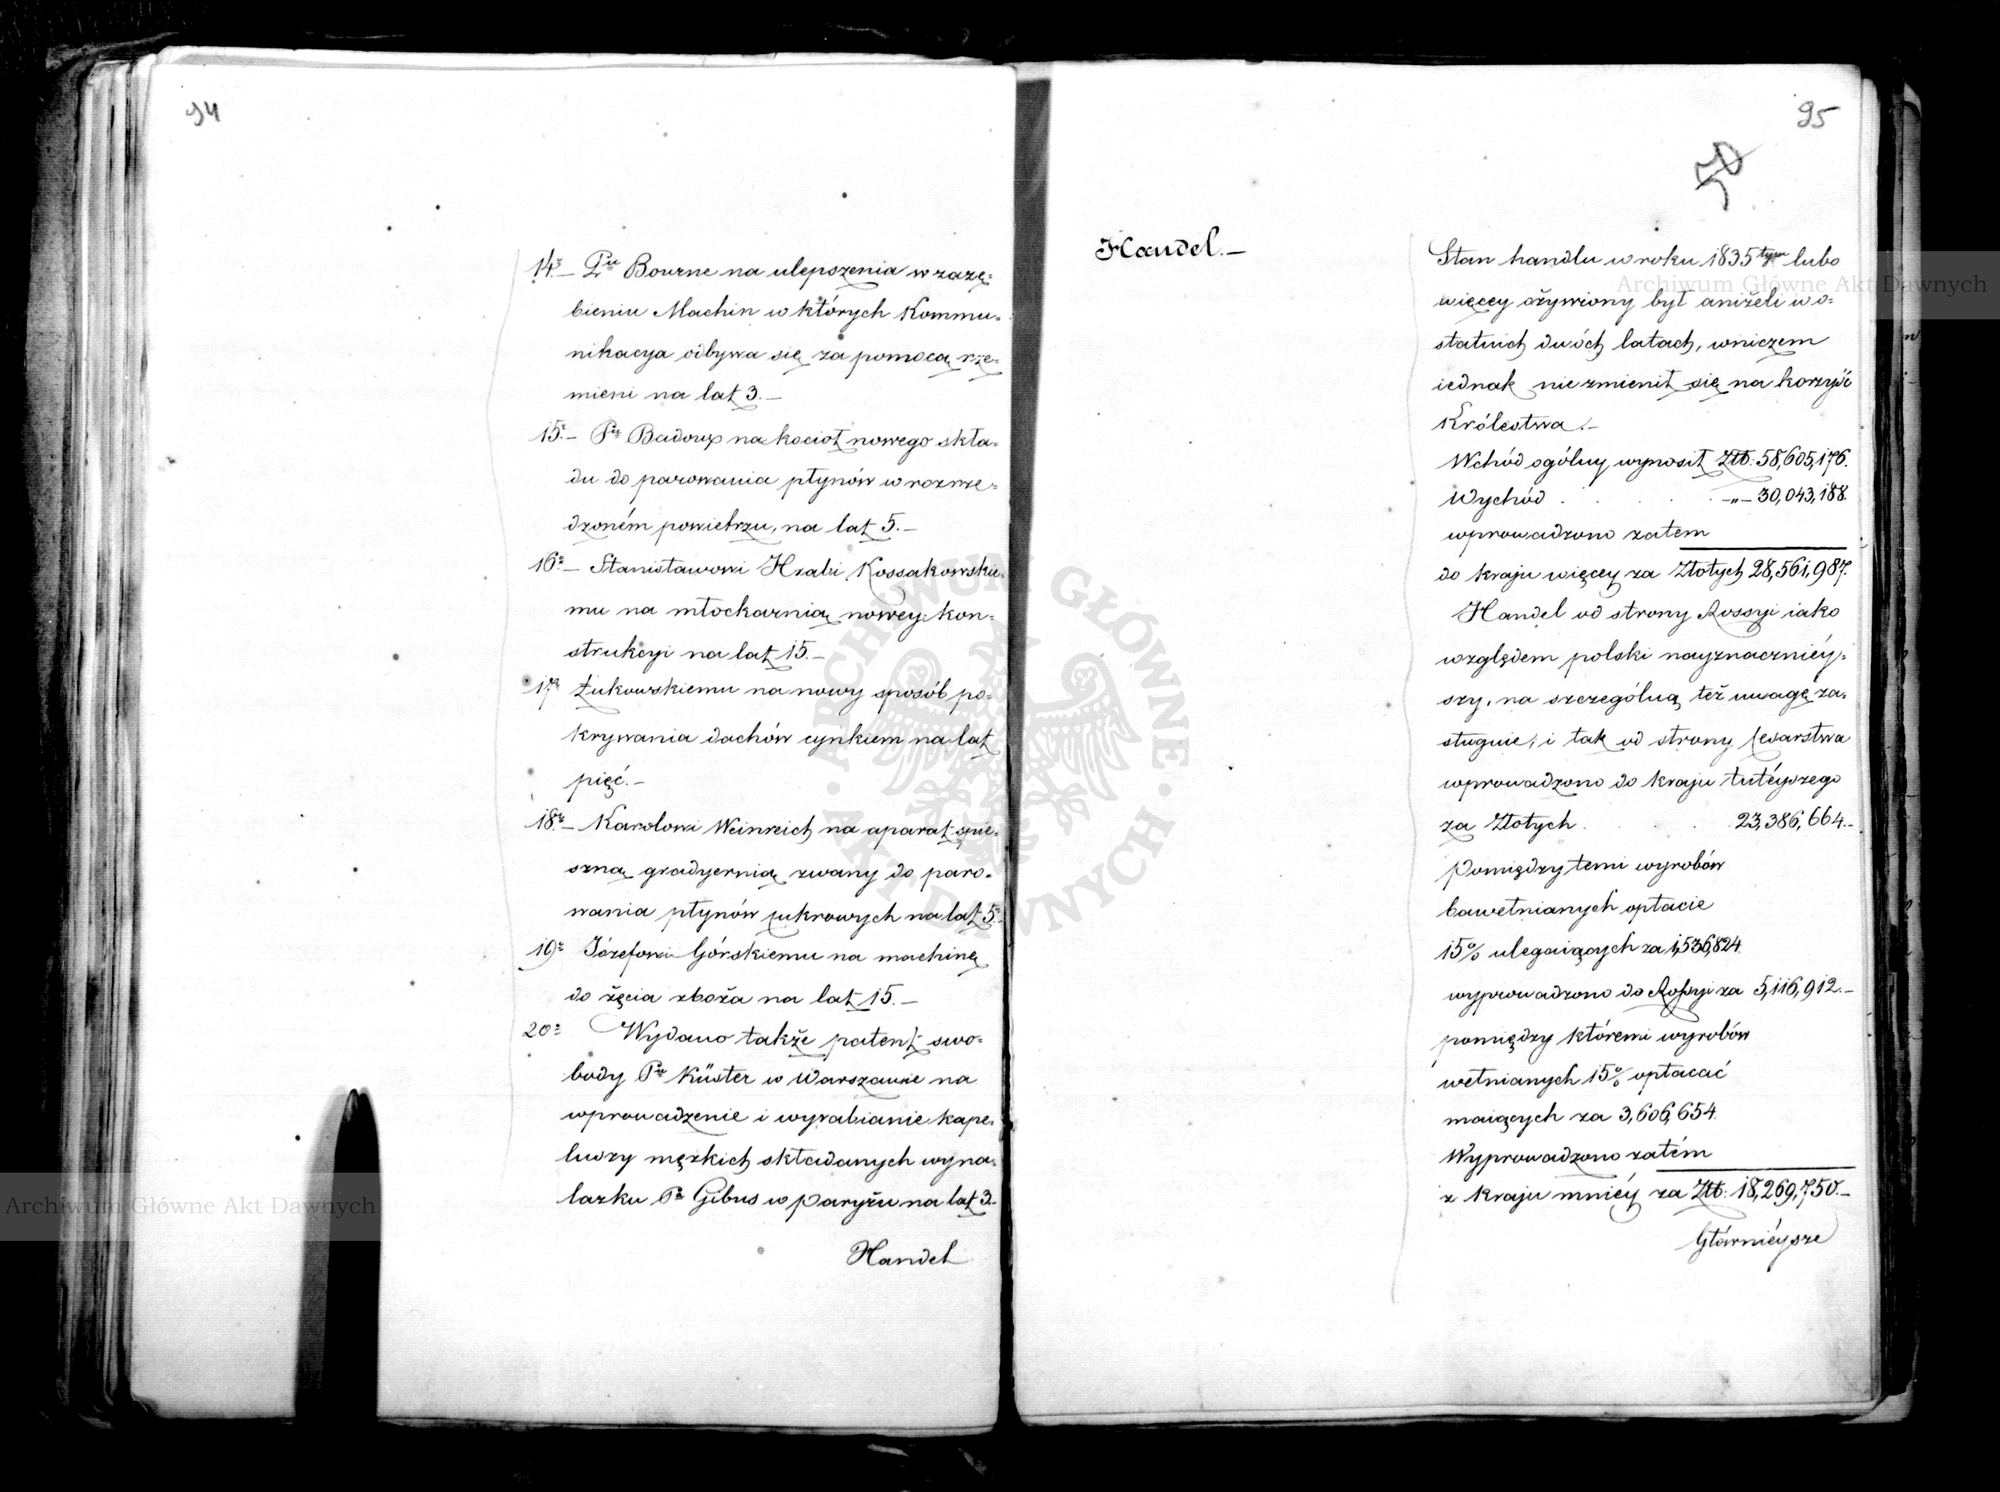 94
14º – Pnu Bourne na ulepszenia w zazę=
bieniu Machin w których Kommu=
nikacya odbywa się za pomocą rze=
mieni na lat 3. –
15º – Pu Badoux na kocioł nowego skła=
du do parowania płynów w rozrze=
dzoném powietrzu, na lat 5. –
16º – Stanisławowi Hrabi Kossakowskie=
mu na młockarnią nowey kon=
strukcyi na lat 15. –
17º Żukowskiemu na nowy sposób po=
krywania dachów cynkiem na lat
pięć. –
18º – Karolowi Weinreich na aparat spie=
szną gradyernią zwany do paro=
wania płynów cukrowych na lat 5. –
19º Józefowi Górskiemu na machinę
do żęcia zboża na lat 15. –
20º Wydano także patent swo=
body Pu Küster w Warszawie na
wprowadzenie i wyrabianie kape=
luszy męzkich składanych wyna=
lazku Pa Gibus w Paryżu na lat 3. –
Handel
95
50
Handel. –
Stan handlu w roku 1835tym lubo
więcey ożywiony był aniżeli w o=
statnich dwóch latach, w niczem
iednak nie zmienił się na korzyść
Królestwa. –
Wchód ogólny wynosił Złt: 58,605,176.
Wychód . . . . – „ – 30,043,188.
wprowadzono zatem
do kraju więcey za Złotych 28,561,987.
Handel od strony Rossyi iako
względem polski nayznacznièy=
szy, na szczególną też uwagę za=
sługuie; i tak od strony Cesarstwa
wprowadzono do kraju tutéyszego
za Złotych . . . 23,386,664. –
Pomiędzy temi wyrobów
bawełnianych opłacie
15% ulegaiących za 1,536,824.
wyprowadzono do Rossyi za 5,116,912. –
pomiędzy któremi wyrobów
wełnianych 15% opłacać
maiących za 3,606,654.
Wyprowadzono zatém
z kraju mniéy za Złt: 18,269,750. –
Główniéysze
Archiwum Główne Akt Dawnych
Archiwum Główne Akt Dawnych
ARCHIWUM GŁÓWNE AKT DAWNYCH